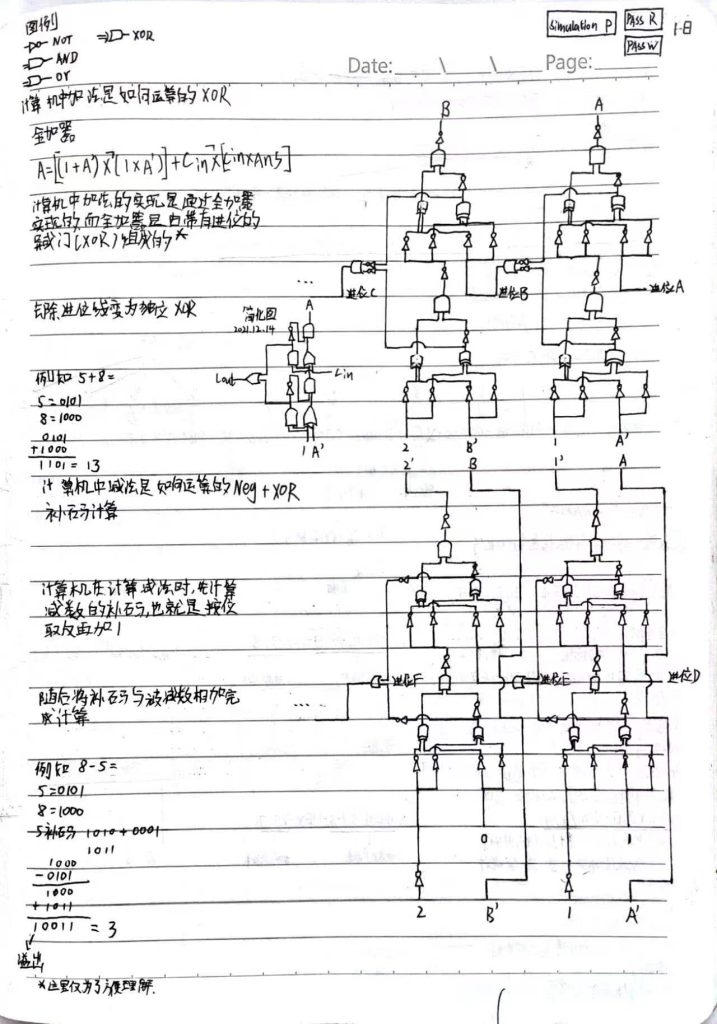 图例
NOT XOR
AND
OY
Simulation P
PASS R
PASS W
1-8
Date: \ \ Page:
计算机中加法是如何运算的 XOR
全加器
计算机中加法的实现是通过全加器
实现的,而全加器是由带有进位的
异或门(XOR)组成的*
去除进位线变为独立XOR
简化图
2021.12.14
A
Lout
Lin
1 A'
例如 5+8=
5=0101
8=1000
0101
+1000
1101=13
B A
...
进位C 进位B 进位A
2 B' 1 A'
计算机中减法是如何运算的Neg+XOR
补码计算
计算机在计算减法时,先计算
减数的补码,也就是按位
取反再加1
随后将补码与被减数相加完
成计算
例如 8-5=
5=0101
8=1000
5补码 1010+0001
1011
1000
-0101
1000
+1011
10011 =3
溢出
*这里仅为了方便理解.
2' B 1' A
...
进位F 进位E 进位D
0 1
2 B' 1 A'